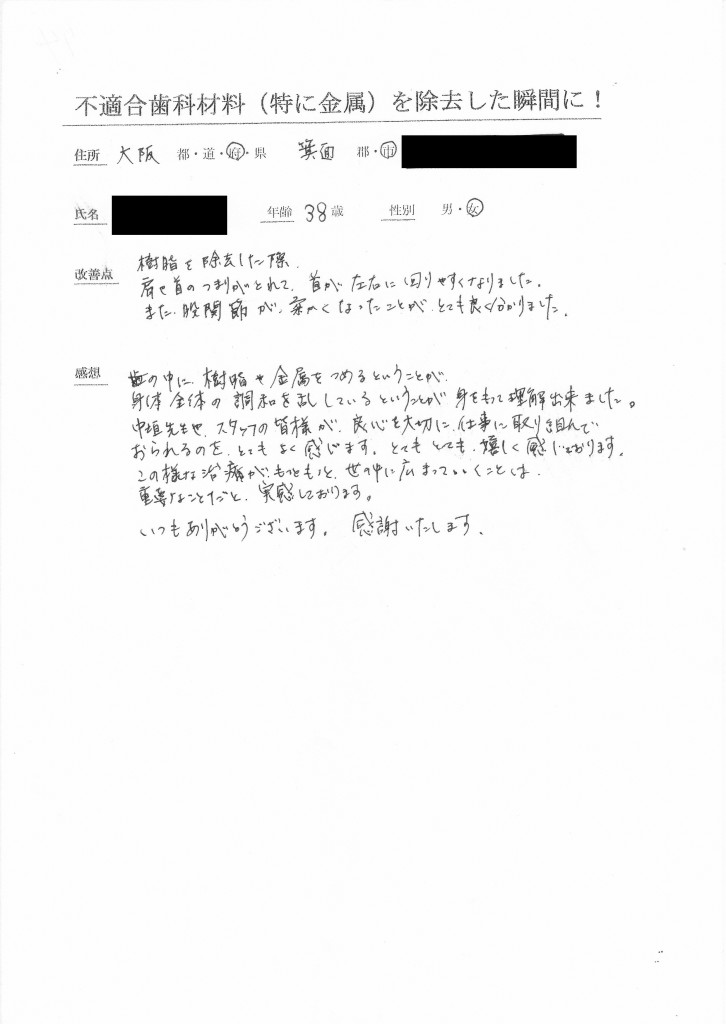 不適合歯科材料（特に金属）を除去した瞬間に！
住所 大阪 都・道・府・県 箕面 郡・市
氏名 年齢 38歳 性別 男・女
改善点 樹脂を除去した際、
肩や首のつまりがとれて、首が左右に回りやすくなりました。
また、股関節が、柔かくなったことが、とても良く分かりました。
感想 歯の中に、樹脂や金属をつめるということが、
身体全体の調和を乱しているということが身をもって理解出来ました。
中垣先生や、スタッフの皆様が、良心を大切に、仕事に取り組んで
おられるのを、とてもよく感じます。とてもとても、嬉しく感じております。
この様な治療が、もっともっと、世の中に広まっていくことは、
重要なことだと、実感しております。
いつもありがとうございます。 感謝いたします。